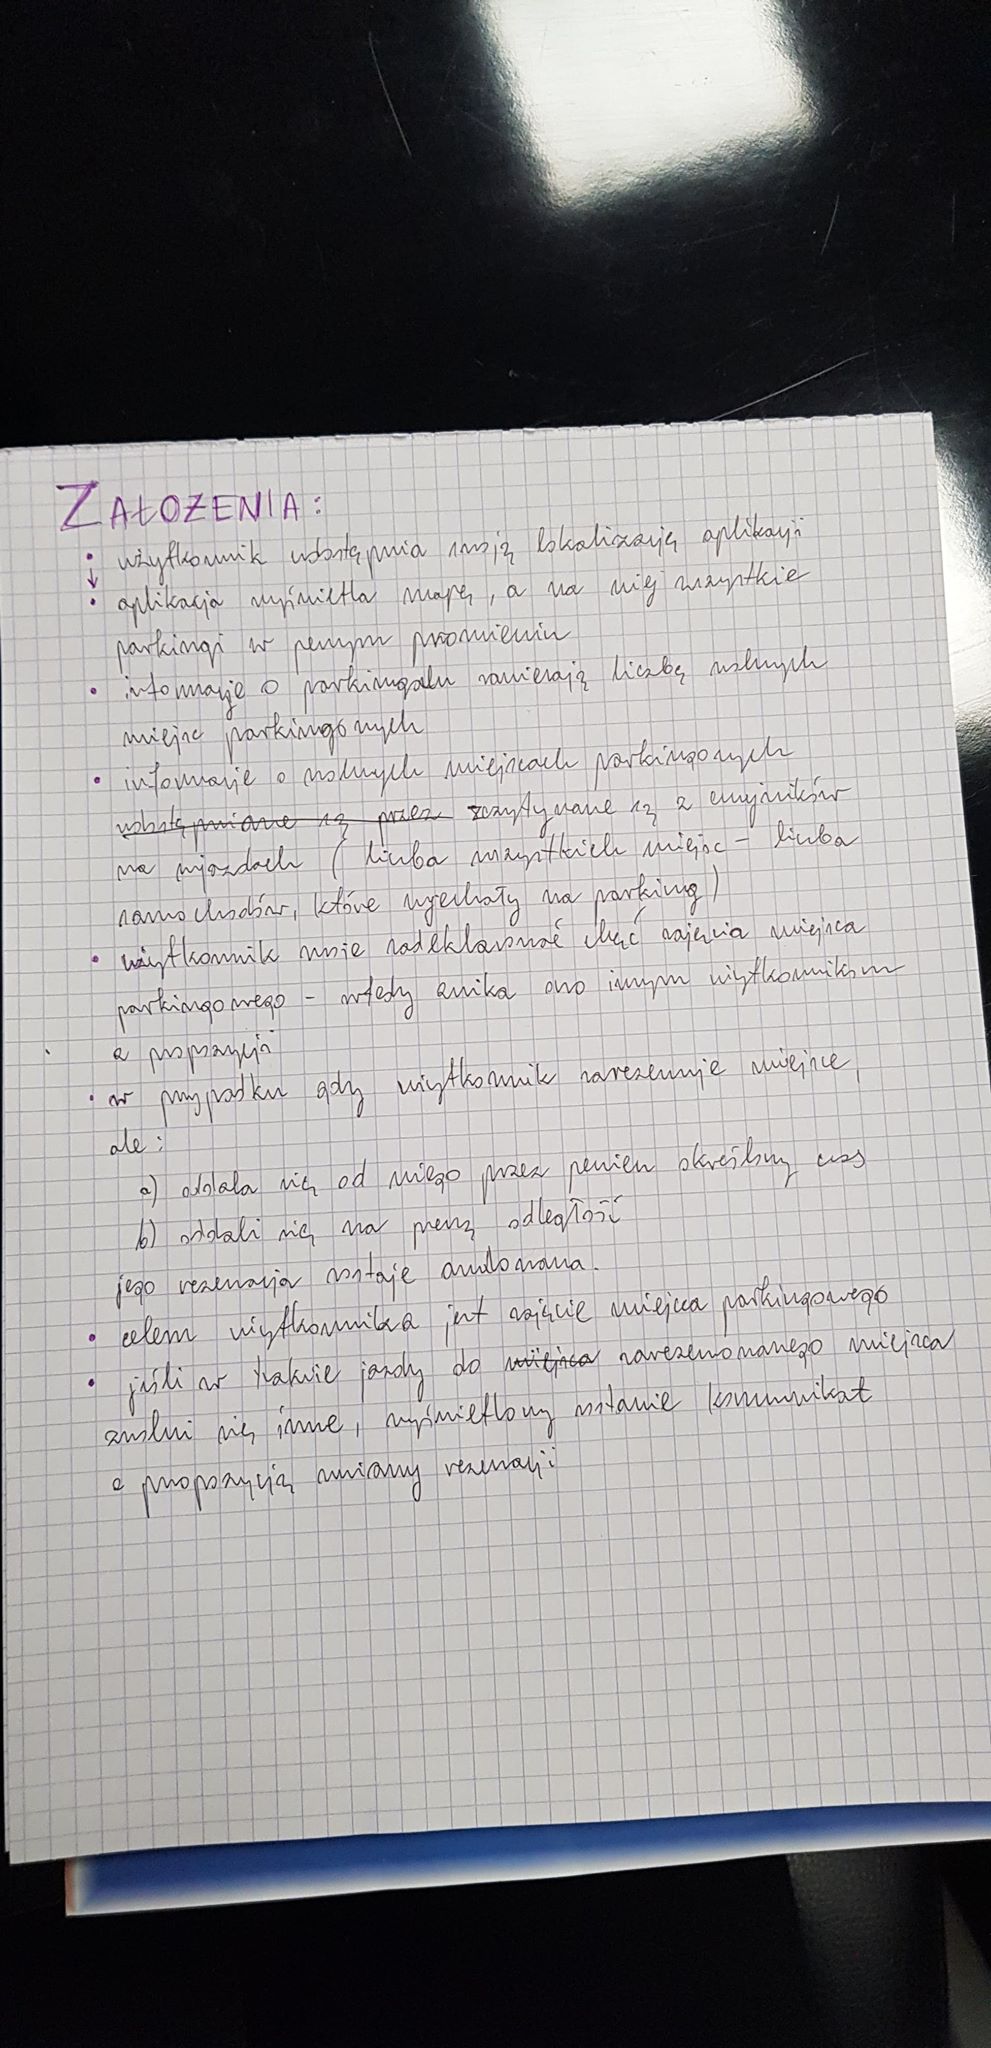 ZAŁOŻENIA:
• użytkownik udostępnia swoją lokalizację aplikacji
↓
• aplikacja wyświetla mapę, a na niej wszystkie
parkingi w pewnym promieniu
• informacje o parkingach zawierają liczbę wolnych
miejsc parkingowych
• informacje o wolnych miejscach parkingowych
udostępniane są przez sczytywane są z czujników
na wjazdach (liczba wszystkich miejsc - liczba
samochodów, które wjechały na parking)
• użytkownik może zadeklarować chęć zajęcia miejsca
parkingowego - wtedy znika ono innym użytkownikom
z propozycji
• w przypadku gdy użytkownik zarezerwuje miejsce,
ale:
a) oddala się od niego przez pewien określony czas
b) oddali się na pewną odległość
jego rezerwacja zostaje anulowana.
• celem użytkownika jest zajęcie miejsca parkingowego
• jeśli w trakcie jazdy do miejsca zarezerwowanego miejsca
zwolni się inne, wyświetlony zostanie komunikat
z propozycją zmiany rezerwacji